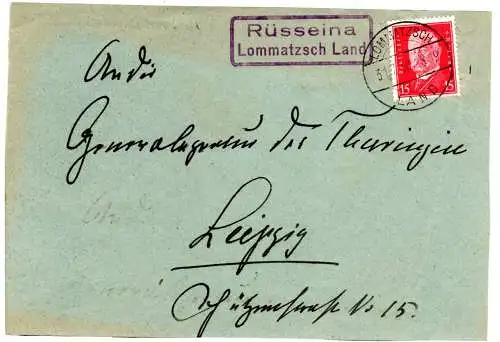 Rüsseina
Lommatzsch Land
LOMMATZSCH
LAND
15 15
An die
Generalagentur der Thuringia
Leipzig
Schützenstrasse No 15.